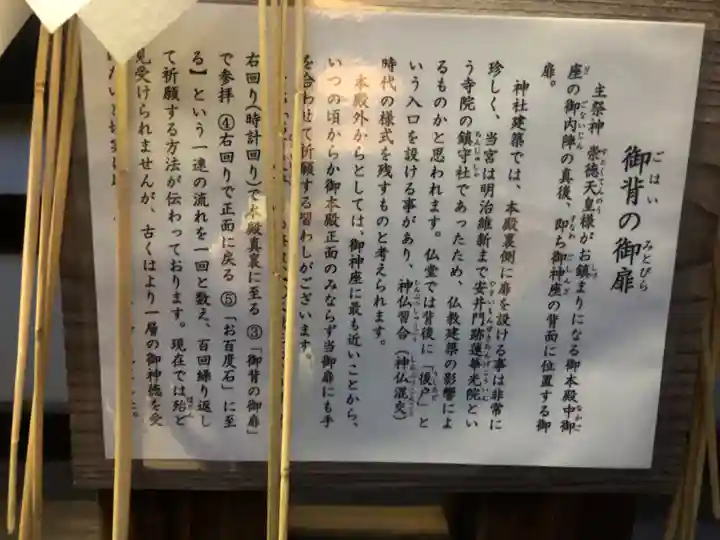 御背の御扉
主祭神 崇徳天皇様がお鎮まりになる御本殿中御
座の御内陣の真後、即ち御神座の背面に位置する御
扉。
神社建築では、本殿裏側に扉を設ける事は非常に
珍しく、当宮は明治維新まで安井門跡蓮華光院とい
う寺院の鎮守社であったため、仏教建築の影響によ
るものかと思われます。仏堂では背後に「後戸」と
いう入口を設ける事があり、神仏習合(神仏混交)
時代の様式を残すものと考えられます。
本殿外からとしては、御神座に最も近いことから、
いつの頃からか御本殿正面のみならず当御扉にも手
を合わせて祈願する習わしがございます。
右回り(時計回り)で本殿真裏に至る ③「御背の御扉」
で参拝 ④右回りで正面に戻る ⑤「お百度石」に至
る】という一連の流れを一回と数え、百回繰り返し
て祈願する方法が伝わっております。現在では殆ど
見受けられませんが、古くはより一層の御神徳を受